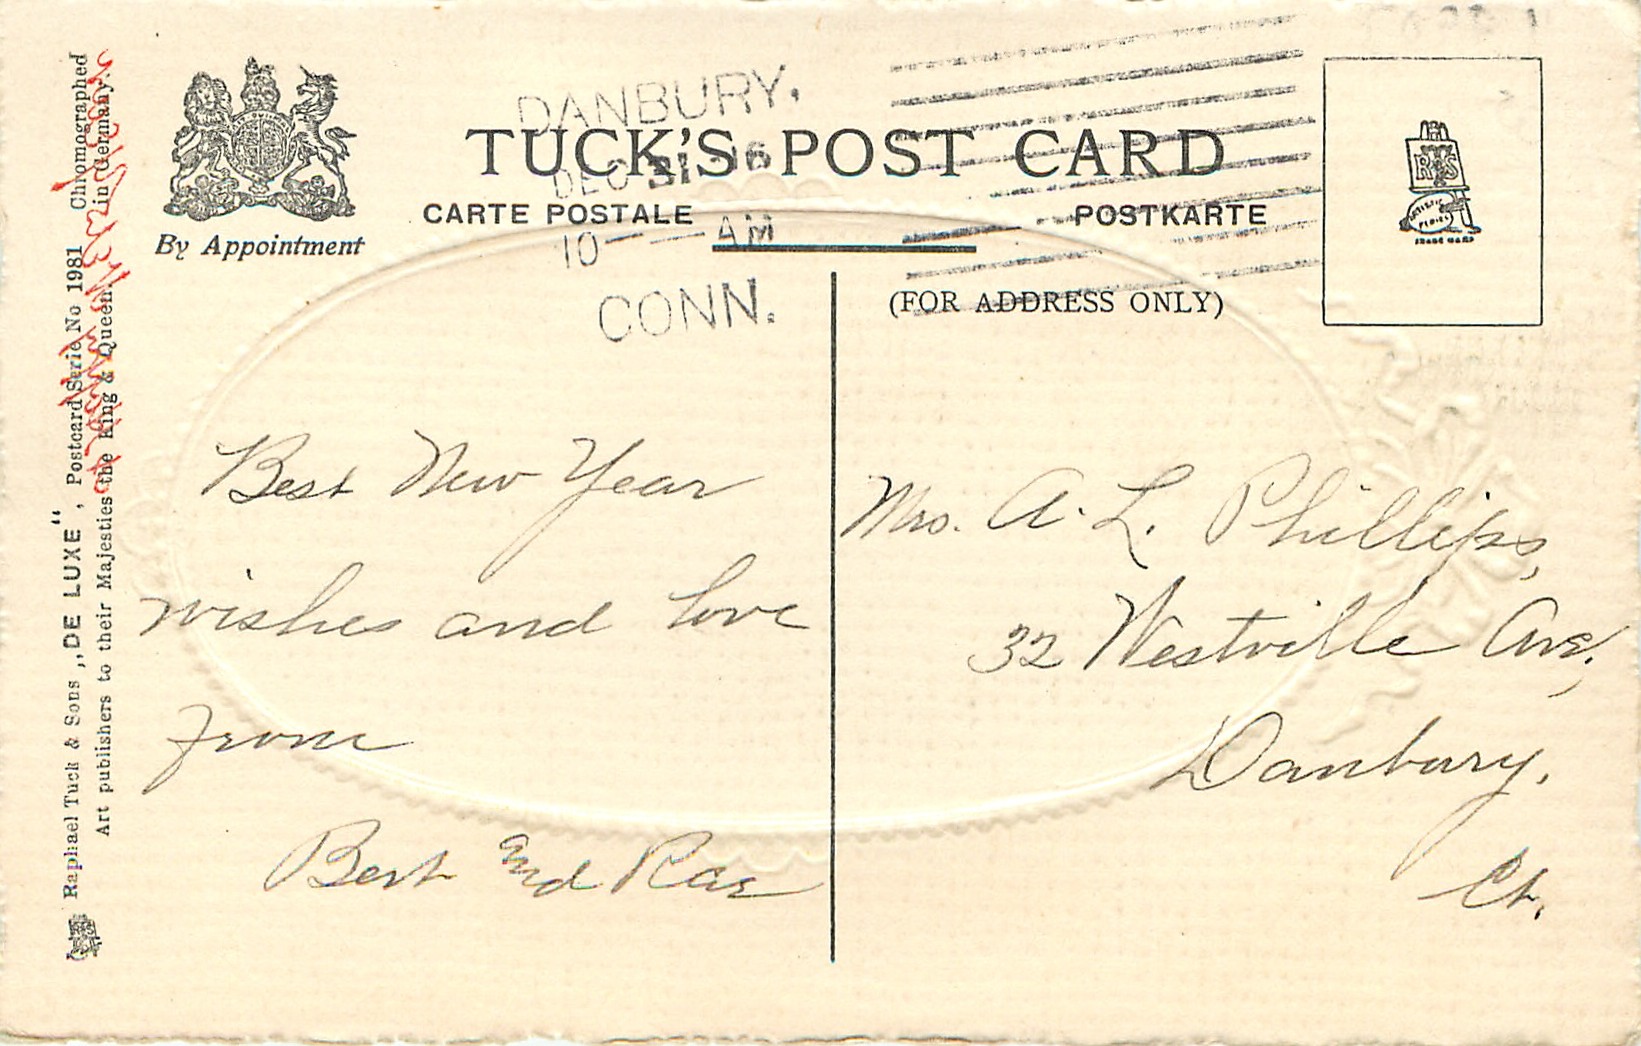 DANBURY,
DEC 31 16
10 — AM
CONN.
TUCK'S POST CARD
CARTE POSTALE
POSTKARTE
By Appointment
(FOR ADDRESS ONLY)
Raphael Tuck & Sons „DE LUXE“, Postcard Serie No 1981 Chromographed
Art publishers to their Majesties the King & Queen. in Germany.
Best New Year
wishes and love
from
Bert and Rae
Mrs. A. L. Phillips,
32 Westville Ave,
Danbury,
Ct.